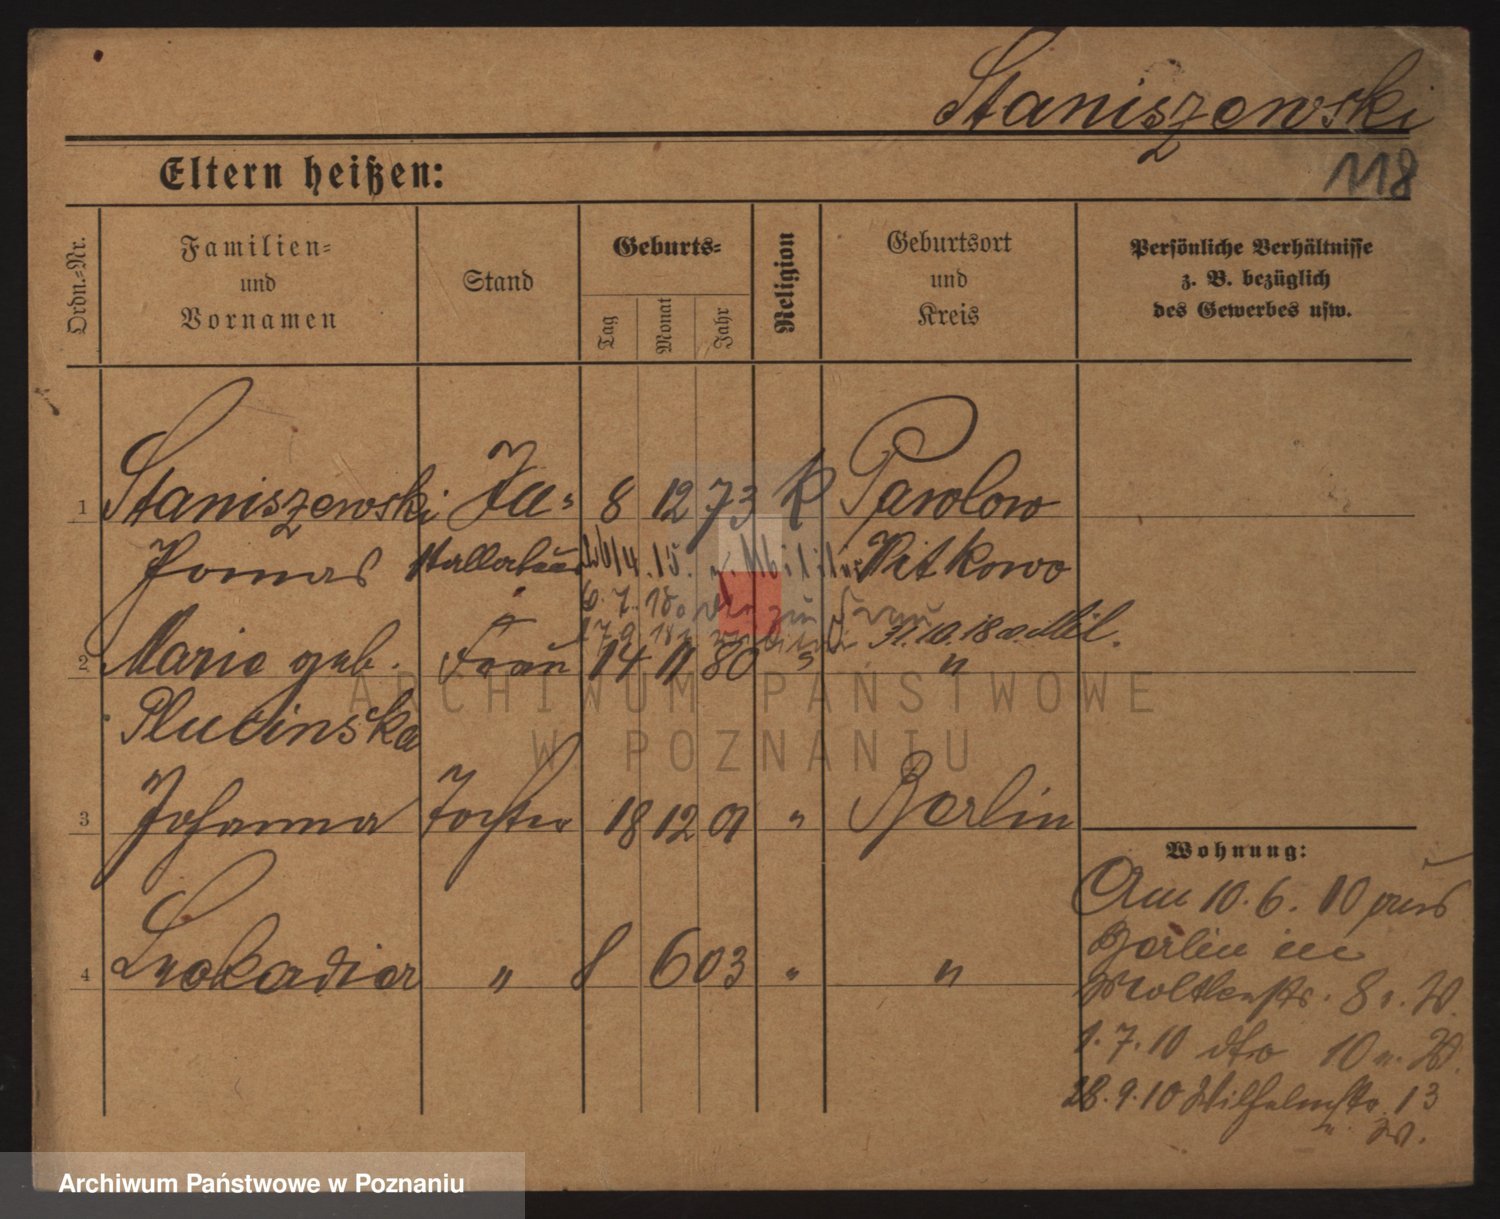 Staniszewski
118
Eltern heißen:
Ordn.-Nr.
Familien-
und
Vornamen
Stand
Geburts-
Tag
Monat
Jahr
Religion
Geburtsort
und
Kreis
Persönliche Verhältnisse
z. B. bezüglich
des Gewerbes usw.
1 Staniszewski 8 12 73 K Pawlowo
Witkowo
6. 7. 18. zur Frau
31.10.18 v. Mil.
2 Marie geb. Frau 14 11 80 " "
Plucinska
3 Johanna Tochter 18 12 01 " Berlin
4 Leokadia " 8 6 03 " "
Wohnung:
Am 10. 6. 10 aus
Berlin in
Moltkestr. 8 b. W.
1. 7. 10 dto 10 b. W.
28. 9. 10 Wilhelmstr. 13
b. W.
ARCHIWUM PAŃSTWOWE
W POZNANIU
Archiwum Państwowe w Poznaniu